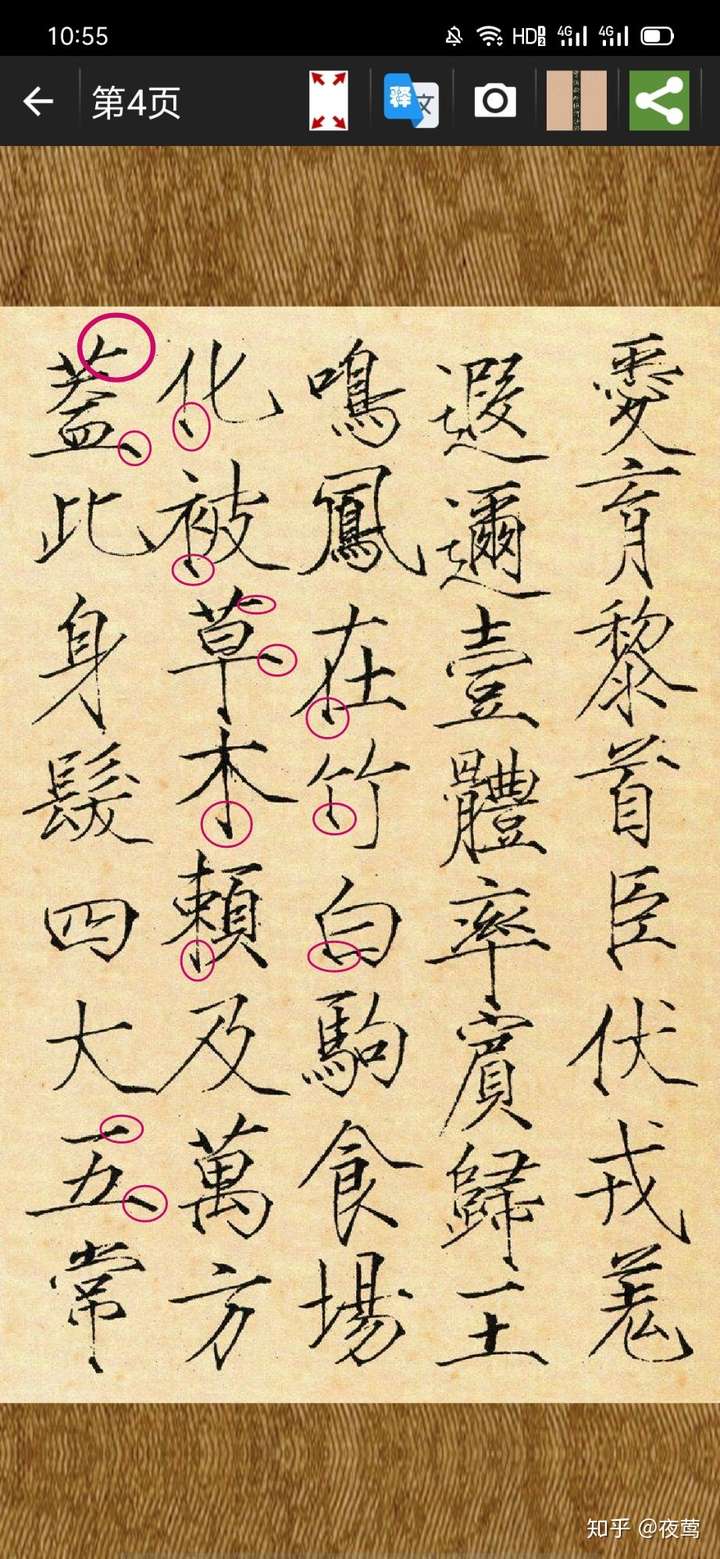 10:55
HD 1 2 4G 4G
第4页
释 文
愛育黎首臣伏戎羌
遐邇壹體率賓歸王
鳴鳳在竹白駒食場
化被草木賴及萬方
蓋此身髮四大五常
知乎 @夜莺